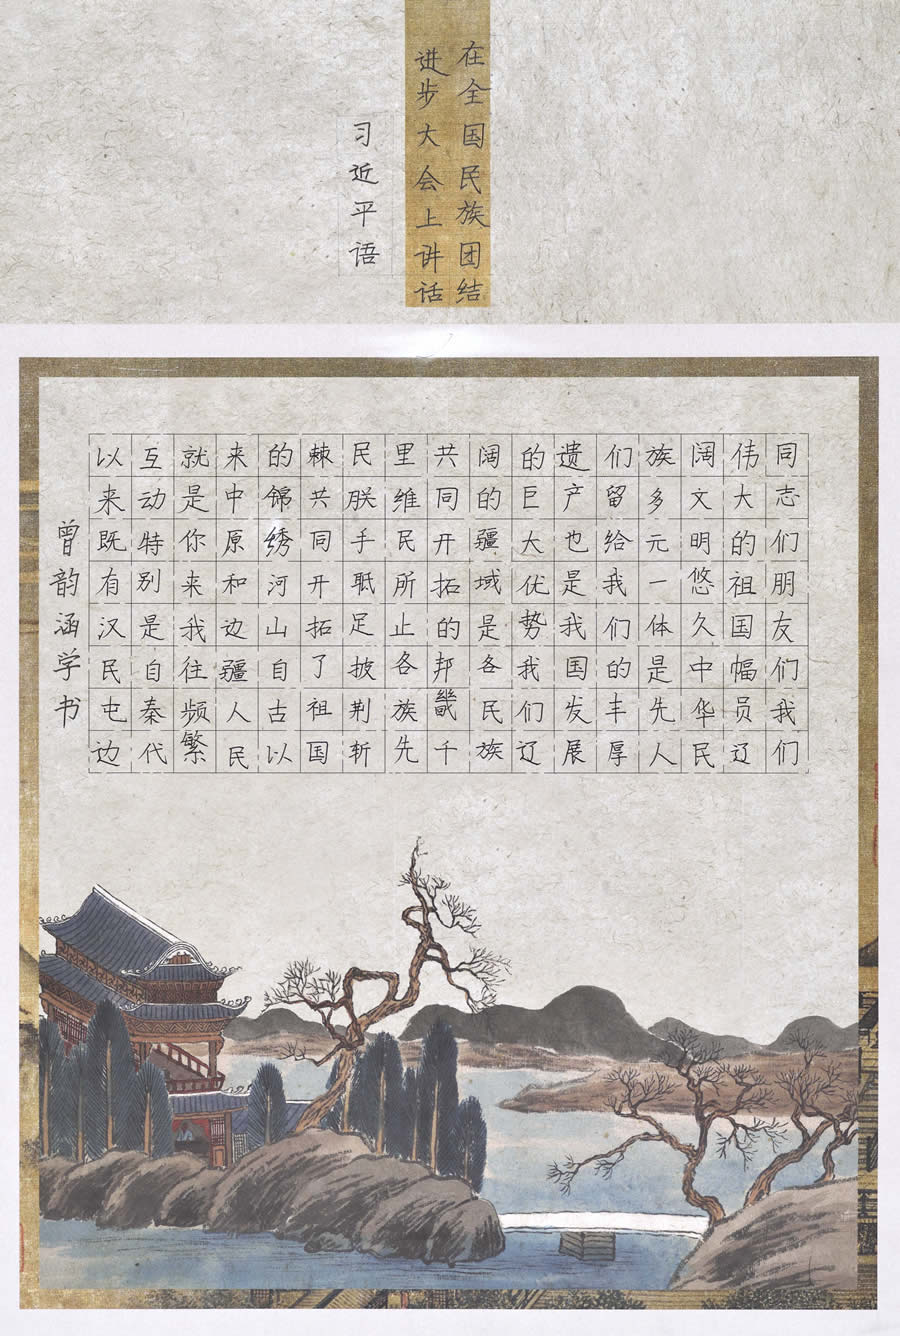 在全国民族团结
进步大会上讲话
习近平语
同志们朋友们我们
伟大的祖国幅员辽
阔文明悠久中华民
族多元一体是先人
们留给我们的丰厚
遗产也是我国发展
的巨大优势我们辽
阔的疆域是各民族
共同开拓的邦畿千
里维民所止各族先
民朕手胝足披荆斩
棘共同开拓了祖国
的锦绣河山自古以
来中原和边疆人民
就是你来我往频繁
互动特别是自秦代
以来既有汉民屯边
曾韵涵学书